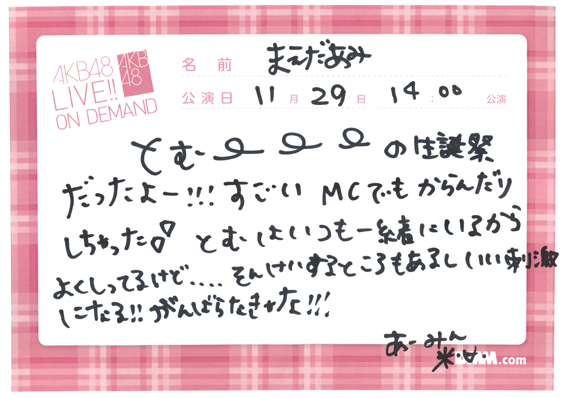 AKB48
LIVE!!
ON DEMAND
AKB
48
名前 まえだあみ
公演日 11月29日 14:00 公演
とむ〜〜〜の生誕祭
だったよー!!!すごいMCでもからんだり
しちゃった♪ とむはいつも一緒にいるから
よくしってるけど....そんけいするところもあるしいい刺激
になる!!がんばらなきゃな!!!
あーみん
.com